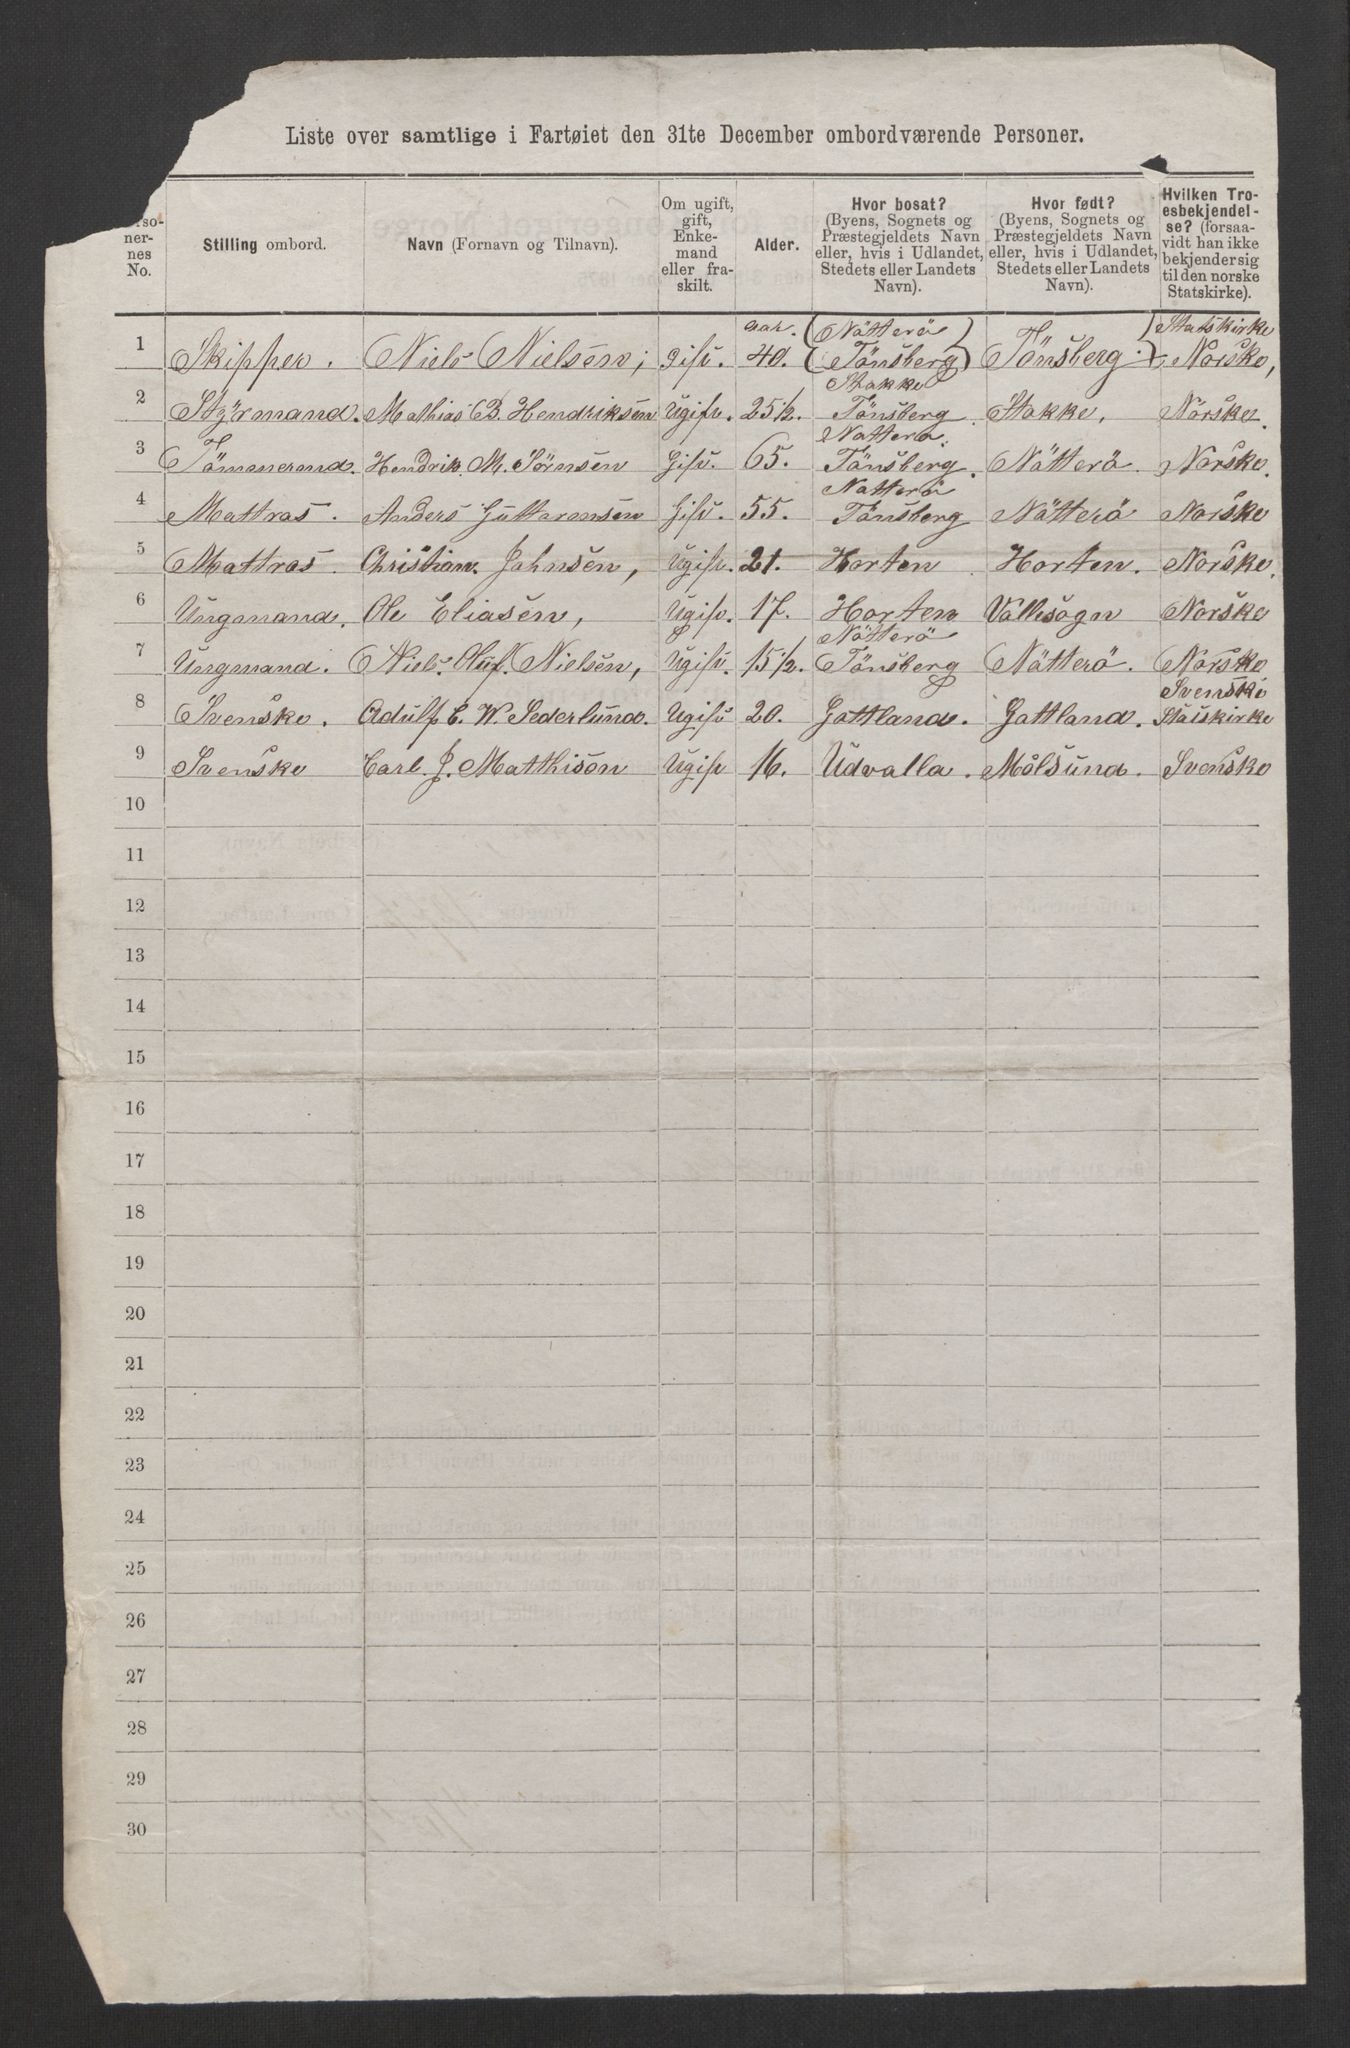 Liste over samtlige i Fartøiet den 31te December ombordværende Personer.
nernes No. | Stilling ombord. | Navn (Fornavn og Tilnavn). | Om ugift, gift, Enkemand eller fraskilt. | Alder. | Hvor bosat? (Byens, Sognets og Præstegjeldets Navn eller, hvis i Udlandet, Stedets eller Landets Navn). | Hvor født? (Byens, Sognets og Præstegjeldets Navn eller, hvis i Udlandet, Stedets eller Landets Navn). | Hvilken Troesbekjendelse? (forsaavidt han ikke bekjender sig til den norske Statskirke).
1 | Skipper. | Niels Nielsen; | gift. | aar. 40. | (Nötterö Tönsberg) | Tönsberg. | Statskirke Norske,
2 | Styrmand. | Mathias B. Hendriksen | Ugift. | 25 1/2. | Stokke Tönsberg | Stokke, | Norske.
3 | Tömmermd. | Hendrik M. Sörnsen | Gift. | 65. | Nötterö. Tönsberg. | Nötterö. | Norske.
4 | Mattros. | Anders Guttormsen | Gift. | 55. | Nötterö Tönsberg | Nötterö | Norske
5 | Mattros. | Christian. Johnsen, | Ugift. | 21. | Horten | Horten. | Norske.
6 | Ungmand. | Ole Eliasen, | Ugift. | 17. | Horten | Vallesogn | Norske
7 | Ungmand. | Niels. Oluf. Nielsen, | Ugift. | 15 1/2. | Nötterö Tönsberg | Nötterö. | Norske
8 | Svenske. | Adulf E. W. Sederlund. | Ugift | 20. | Gottland. | Gottland. | Svenske Statskirke
9 | Svenske | Carl. J. Matthison | Ugift | 16. | Udvalla. | Målsund. | Svenske
10
11
12
13
14
15
16
17
18
19
20
21
22
23
24
25
26
27
28
29
30